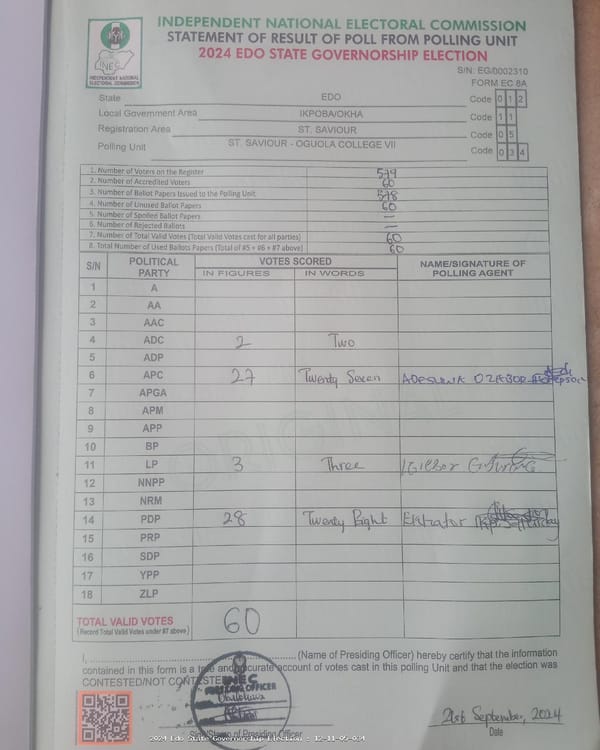 INDEPENDENT NATIONAL ELECTORAL COMMISSION
STATEMENT OF RESULT OF POLL FROM POLLING UNIT
2024 EDO STATE GOVERNORSHIP ELECTION
INEC
INDEPENDENT NATIONAL ELECTORAL COMMISSION
S/N: EG/0002310
FORM EC 8A
State EDO Code 0 1 2
Local Government Area IKPOBA/OKHA Code 1 1
Registration Area ST. SAVIOUR Code 0 5
Polling Unit ST. SAVIOUR - OGUOLA COLLEGE VII Code 0 3 4
1. Number of Voters on the Register 579
2. Number of Accredited Voters 60
3. Number of Ballot Papers Issued to the Polling Unit 578
4. Number of Unused Ballot Papers 60
5. Number of Spoiled Ballot Papers —
6. Number of Rejected Ballots —
7. Number of Total Valid Votes (Total Valid Votes cast for all parties) 60
8. Total Number of Used Ballots Papers (Total of #5 + #6 + #7 above) 60
S/N POLITICAL PARTY VOTES SCORED NAME/SIGNATURE OF POLLING AGENT
IN FIGURES IN WORDS
1 A
2 AA
3 AAC
4 ADC 2 Two
5 ADP
6 APC 27 Twenty Seven
7 APGA
8 APM
9 APP
10 BP
11 LP 3 Three
12 NNPP
13 NRM
14 PDP 28 Twenty Eight
15 PRP
16 SDP
17 YPP
18 ZLP
TOTAL VALID VOTES 60
(Record Total Valid Votes under #7 above)
I, (Name of Presiding Officer) hereby certify that the information
contained in this form is a true and accurate account of votes cast in this polling Unit and that the election was
CONTESTED/NOT CONTESTED
INEC
PRESIDING OFFICER
21st September, 2024
Sign/Stamp of Presiding Officer Date
2024 Edo State Governorship Election : 12-11-05-034